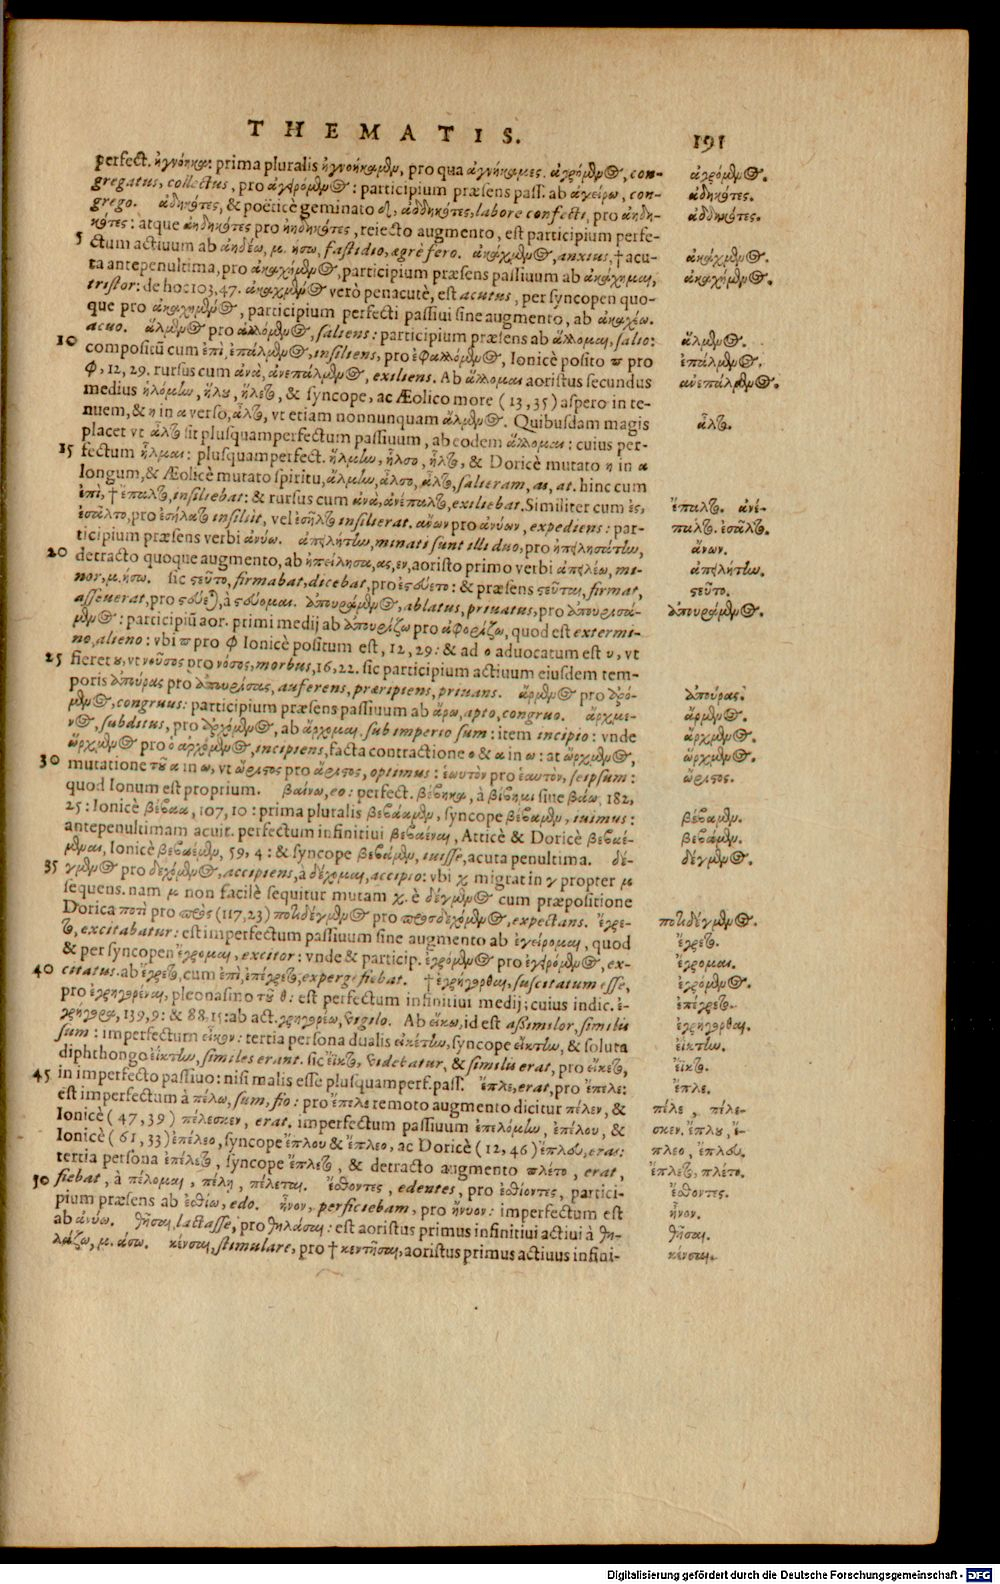 THEMATIS. 191
perfect. ἠγνόηκα: prima pluralis ἠγνοήκαμεν, pro qua ἀγνήκαμες. ἀγρόμενος, con-
gregatus, collectus, pro ἀγειρόμενος: participium præsens pass. ab ἀγείρω, con-
grego. ἀδηκότες, & poëticè geminato δ, ἀδδηκότες, labore confecti, pro ἀηδη-
κότες: atque ἀηδηκότες pro ἠηδηκότες, reiecto augmento, est participium perfe-
5 ctum actiuum ab ἀηδέω, μ. ήσω, fastidio, ægrè fero. ἀκάχμενος, anxius, † acu-
ta antepenultima, pro ἀκαχήμενος, participium præsens passiuum ab ἀκάχημαι,
tristor: de hoc 103, 47. ἀκαχμένος verò penacutè, est acutus, per syncopen quo-
que pro ἀκαχημένος, participium perfecti passiui sine augmento, ab ἀκαχέω.
acuo. ἄλμενος pro ἁλλόμενος, saliens: participium præsens ab ἅλλομαι, salio:
10 compositū cum ἐπὶ, ἐπάλμενος, insiliens, pro ἐφαλλόμενος, Ionicè posito π pro
φ, 12, 29. rursus cum ἀνὰ, ἀνεπάλμενος, exiliens. Ab ἅλλομαι aoristus secundus
medius ἡλόμην, ἥλου, ἥλετο, & syncope, ac Æolico more (13, 35) aspero in te-
nuem, & η in α verso, ἆλτο, vt etiam nonnunquam ἄλμενος. Quibusdam magis
placet vt ἆλτο sit plusquamperfectum passiuum, ab eodem ἅλλομαι: cuius per-
15 fectum ἧλμαι: plusquamperfect. ἥλμην, ἧλσο, ἧλτο, & Doricè mutato η in α
longum, & Æolicè mutato spiritu, ἄλμην, ἆλσο, ἆλτο, salieram, as, at. hinc cum
ἐπὶ, † ἔπαλτο, insiliebat: & rursus cum ἀνὰ, ἀνέπαλτο, exiliebat. Similiter cum ἐς,
ἐσᾶλτο, pro ἐσήλατο insiliit, vel ἐσῆλτο insilierat. ἄνων pro ἀνύων, expediens: par-
ticipium præsens verbi ἀνύω. ἀπειλήτην, minati sunt illi duo, pro ἠπειλησάτην,
20 detracto quoque augmento, ab ἠπείλησα, ας, εν, aoristo primo verbi ἀπειλέω, mi-
nor, μ. ήσω. sic ςεῦτο, firmabat, dicebat, pro ἐςεύετο: & præsens ςεῦται, firmat,
asseuerat, pro ςεύεται, à ςεύομαι. ἀπουράμενος, ablatus, priuatus, pro ἀπουρισά-
μενος: participiū aor. primi medij ab ἀπουρίζω pro ἀφορίζω, quod est extermi-
no, alieno: vbi π pro φ Ionicè positum est, 12, 29: & ad ο aduocatum est υ, vt
25 fieret ου, vt νοῦσος pro νόσος, morbus, 16, 22. sic participium actiuum eiusdem tem-
poris ἀπούρας pro ἀπουρίσας, auferens, præripiens, priuans. ἄρμενος pro ἀρό-
μενος, congruus: participium præsens passiuum ab ἄρω, apto, congruo. ἄρχμε-
νος, subditus, pro ἀρχόμενος, ab ἄρχομαι. sub imperio sum: item incipio: vnde
ὤρχμενος pro ὁ ἀρχόμενος, incipiens, facta contractione ο & α in ω: at ὤρχμενος,
30 mutatione τοῦ α in ω, vt ὤριςος pro ἄριςος, optimus: ἑωυτὸν pro ἑαυτὸν, seipsum:
quod Ionum est proprium. βαίνω, eo: perfect. βέβηκα, à βίβημι siue βάω, 182,
25: Ionicè βέβαα, 107, 10: prima pluralis βεβάαμεν, syncope βέβαμεν, iuimus:
antepenultimam acuit. perfectum infinitiui βεβαέναι, Atticè & Doricè βεβαέ-
μεναι, Ionicè βεβαέμεν, 59, 4: & syncope βεβάμεν, iuisse, acuta penultima. δέ-
35 γμενος pro δεχόμενος, accipiens, à δέχομαι, accipio: vbi χ migrat in γ propter μ
sequens. nam μ non facilè sequitur mutam χ. è δέγμενος cum præpositione
Dorica ποτὶ pro πρὸς (117, 23) ποτιδέγμενος pro προσδεχόμενος, expectans. ἔγρε-
το, excitabatur: est imperfectum passiuum sine augmento ab ἐγείρομαι, quod
& per syncopen ἔγρομαι, excitor: vnde & particip. ἐγρόμενος pro ἐγειρόμενος, ex-
40 citatus. ab ἔγρετο, cum ἐπὶ, ἐπέγρετο, expergefiebat. † ἐγρήγορθαι, suscitatum esse,
pro ἐγρηγορέναι, pleonasmo τοῦ θ: est perfectum infinitiui medij; cuius indic. ἐ-
γρήγορα, 139, 9: & 88, 15: ab act. γρηγορέω, vigilo. Ab εἴκω, id est assimilor, similis
sum: imperfectum εἶκον: tertia persona dualis εἰκέτην, syncope εἴκτην, & soluta
diphthongo ἐΐκτην, similes erant. sic ἔϊκτο, videbatur, & similis erat, pro εἴκετο,
45 in imperfecto passiuo: nisi malis esse plusquamperf. pass. ἔπλε, erat, pro ἔπελε:
est imperfectum à πέλω, sum, fio: pro ἔπελε remoto augmento dicitur πέλεν, &
Ionicè (47, 39) πέλεσκεν, erat. imperfectum passiuum ἐπελόμην, ἐπέλου, &
Ionicè (61, 33) ἐπέλεο, syncope ἔπλου & ἔπλεο, ac Doricè (12, 46) ἔπλευ, eras:
tertia persona ἐπέλετο, syncope ἔπλετο, & detracto augmento πλέτο, erat,
50 fiebat, à πέλομαι, πέλῃ, πέλεται. ἔσθοντες, edentes, pro ἐσθίοντες, partici-
pium præsens ab ἐσθίω, edo. ἦνον, perficiebam, pro ἤνυον: imperfectum est
ab ἀνύω. θῆσαι, lactasse, pro θηλάσαι: est aoristus primus infinitiui actiui à θη-
λάζω, μ. άσω. κένσαι, stimulare, pro † κεντῆσαι, aoristus primus actiuus infini-
ἀγρόμενος.
ἀδηκότες.
ἀδδηκότες.
ἀκάχμενος.
ἀκαχήμενος.
ἄλμενος.
ἐπάλμενος.
ἀνεπάλμενος.
ἆλτο.
ἔπαλτο. ἀνέ-
παλτο. ἐσᾶλτο.
ἄνων.
ἀπειλήτην.
ςεῦτο.
ἀπουράμενος.
ἀπούρας.
ἄρμενος.
ἄρχμενος.
ὤρχμενος.
ὤριςος.
βέβαμεν.
βεβάμεν.
δέγμενος.
ποτιδέγμενος.
ἔγρετο.
ἔγρομαι.
ἐγρόμενος.
ἐπέγρετο.
ἐγρήγορθαι.
ἐΐκτην.
ἔϊκτο.
ἔπλε.
πέλε, πέλε-
σκεν. ἔπλου, ἔ-
πλεο, ἔπλευ.
ἔπλετο, πλέτο.
ἔσθοντες.
ἦνον.
θῆσαι.
κένσαι.
Digitalisierung gefördert durch die Deutsche Forschungsgemeinschaft - DFG